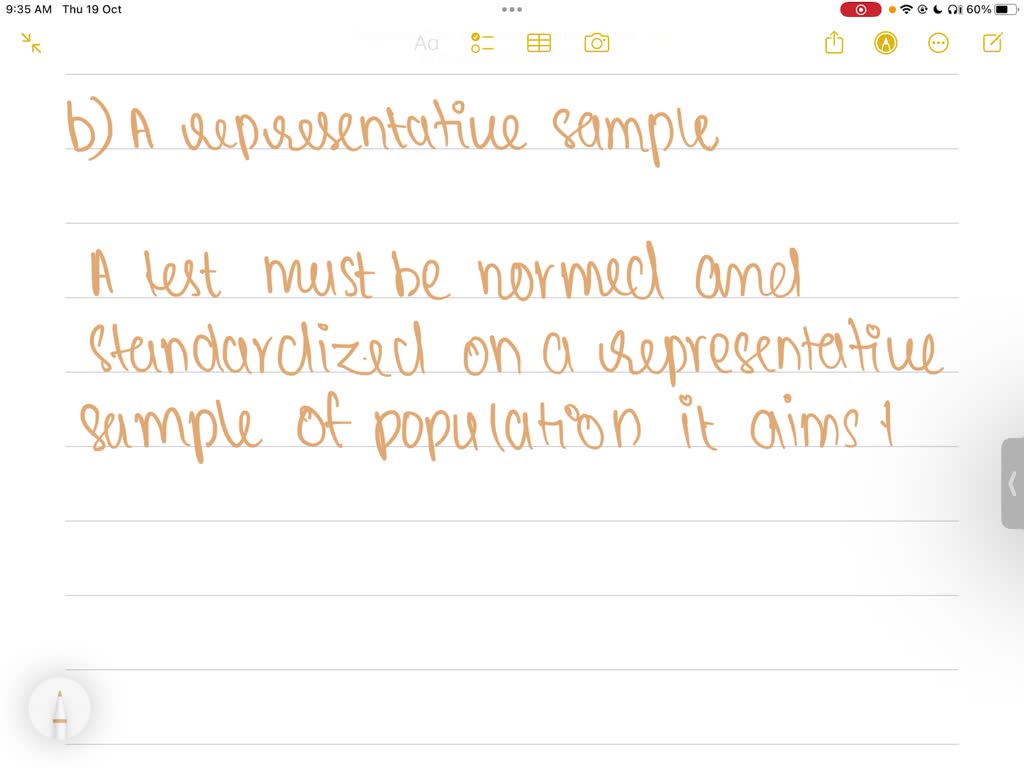 9:35 AM Thu 19 Oct
60%
Aa
b) A representative sample
A test must be normed and
standardized on a representative
sample of population it aims t